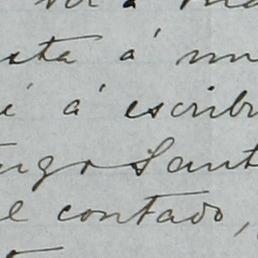 sta á mu
é á escribi
ngo Sant
el contado,